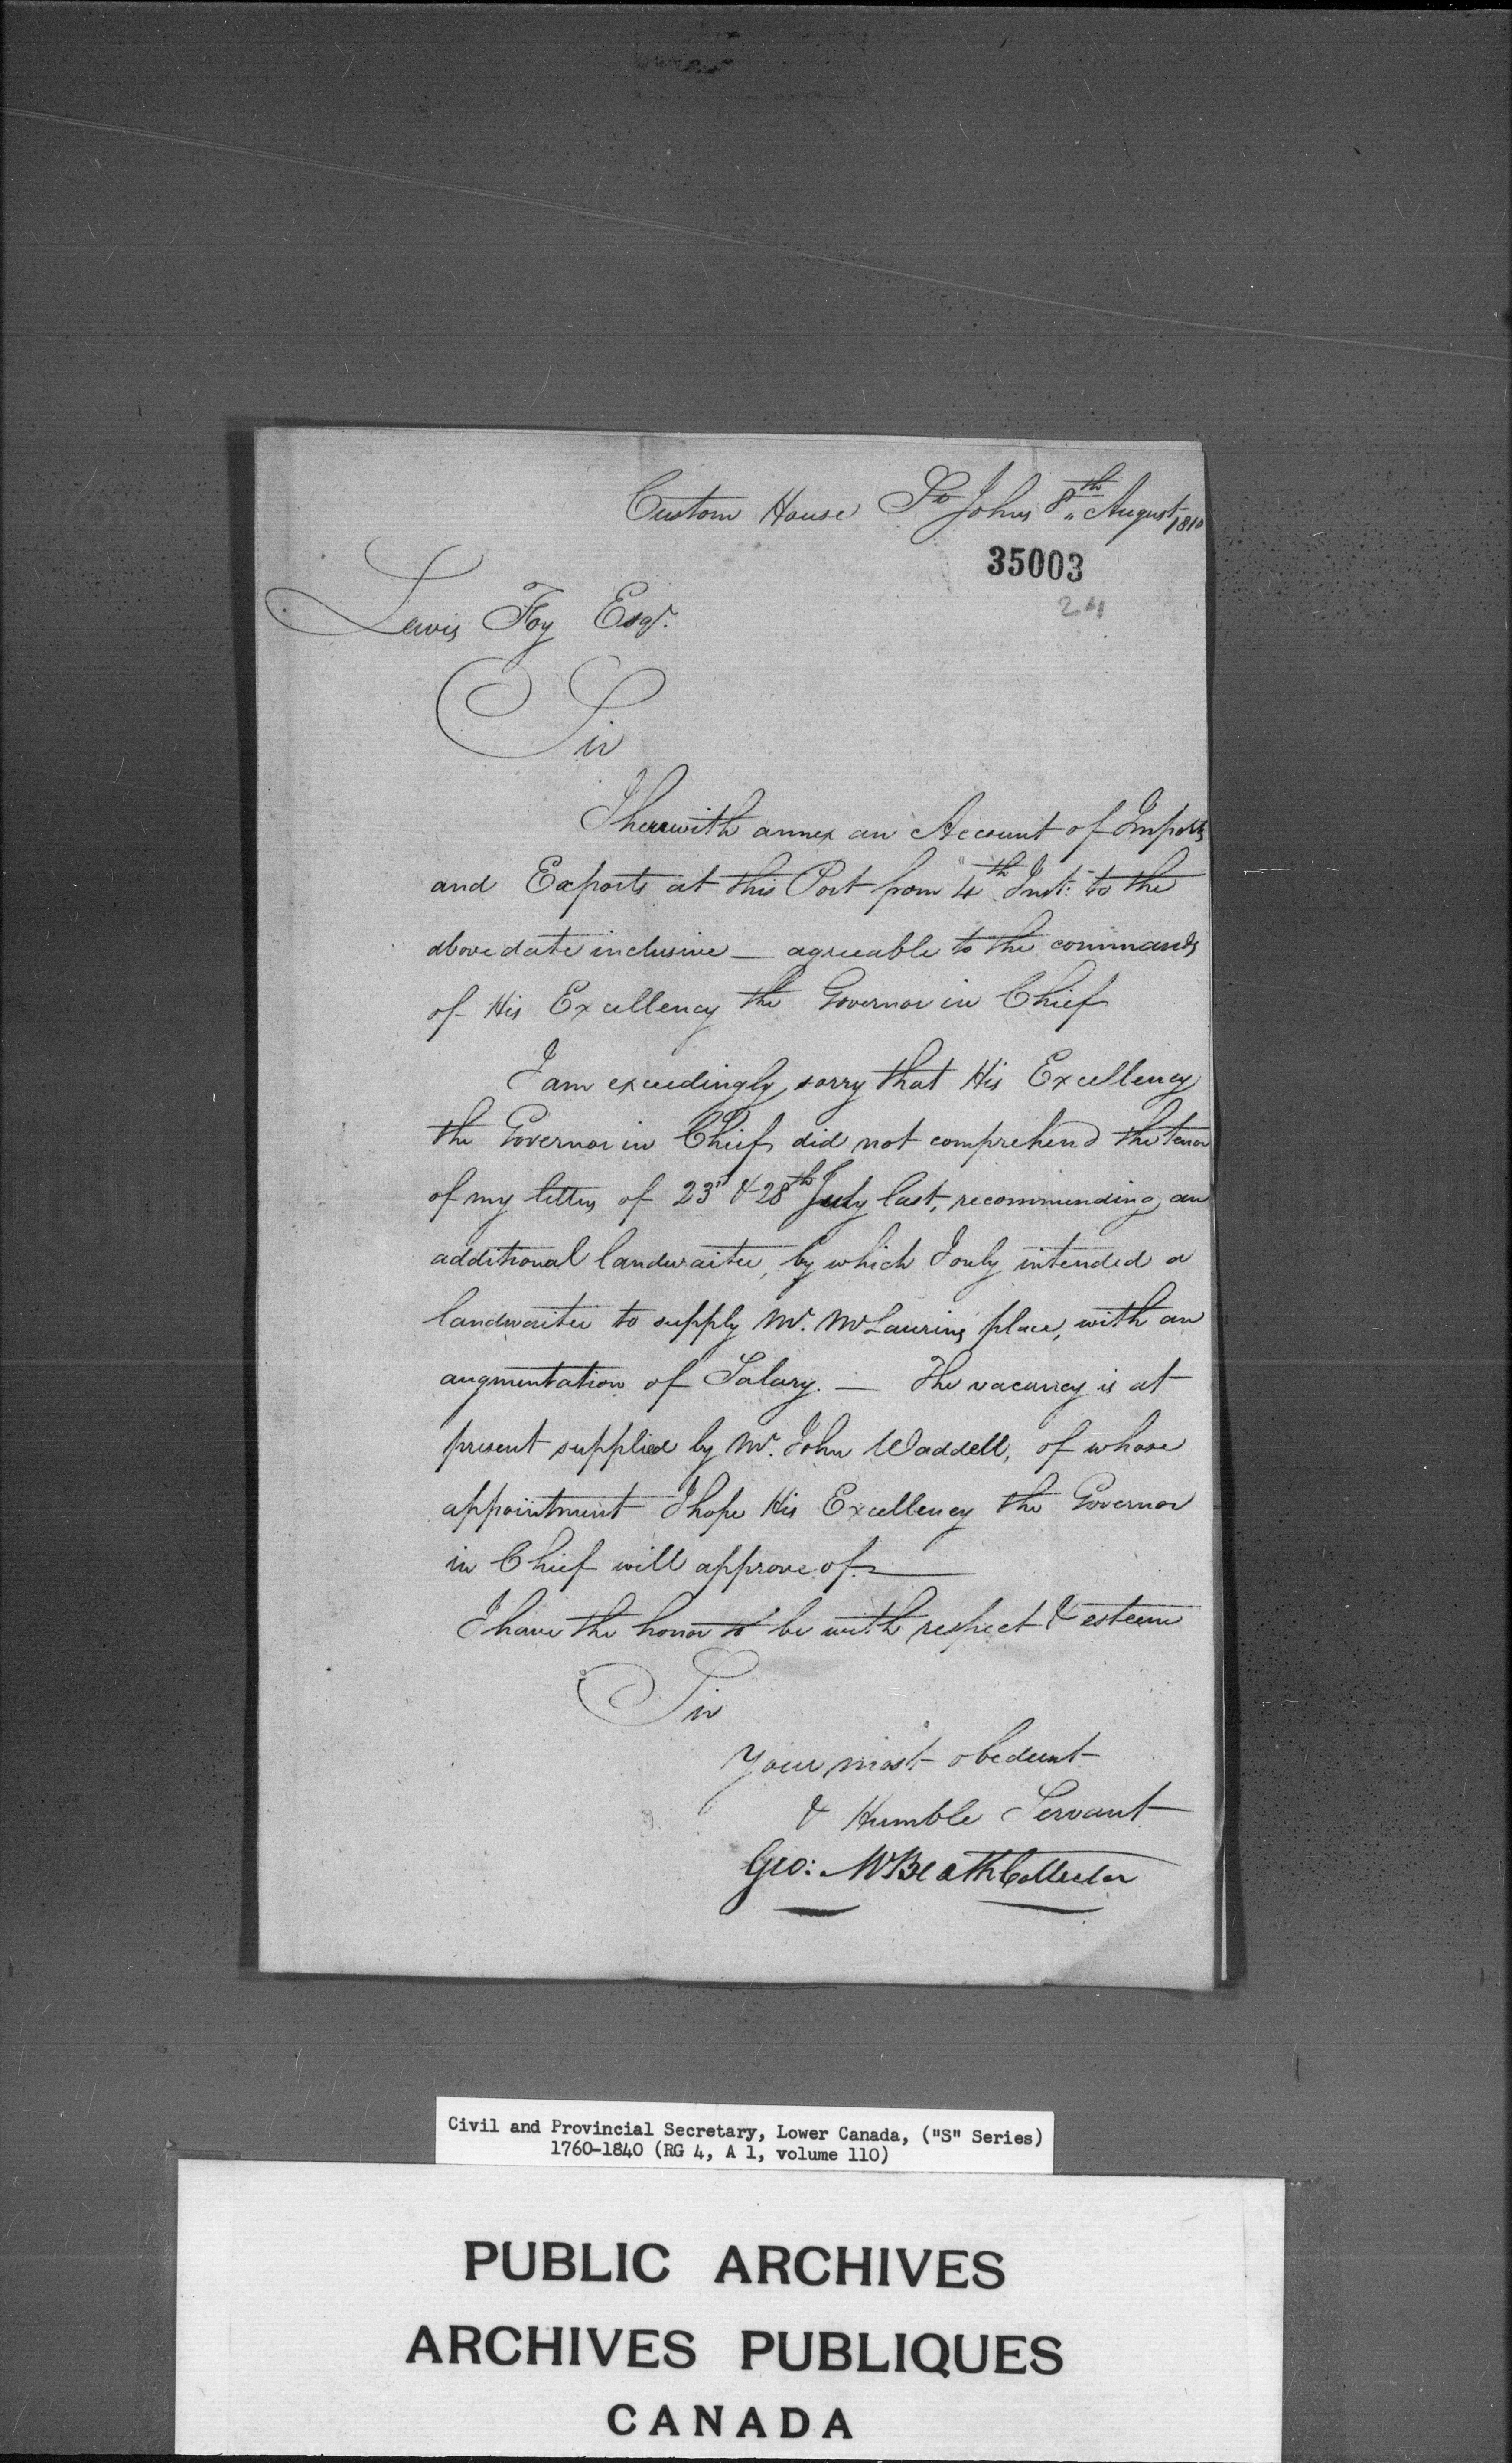 Custom House St Johns 8th August 1810
35003
24
Lewis Foy Esqr.
Sir
I herewith annex an Account of Imports
and Exports at this Port from 4th Inst: to the
above date inclusive — agreeable to the commands
of His Excellency the Governor in Chief
I am exceedingly sorry that His Excellency
the Governor in Chief did not comprehend the tenor
of my letters of 23d & 28th July last, recommending an
additional landwaiter, by which I only intended a
landwaiter to supply Mr. McLaurins place, with an
augmentation of Salary. — The vacancy is at
present supplied by Mr. John Waddell, of whose
appointment I hope His Excellency the Governor
in Chief will approve of. —
I have the honor to be with respect & esteem
Sir
Your most obedient
& Humble Servant
Geo: McBeath Collector
Civil and Provincial Secretary, Lower Canada, ("S" Series)
1760-1840 (RG 4, A 1, volume 110)
PUBLIC ARCHIVES
ARCHIVES PUBLIQUES
CANADA